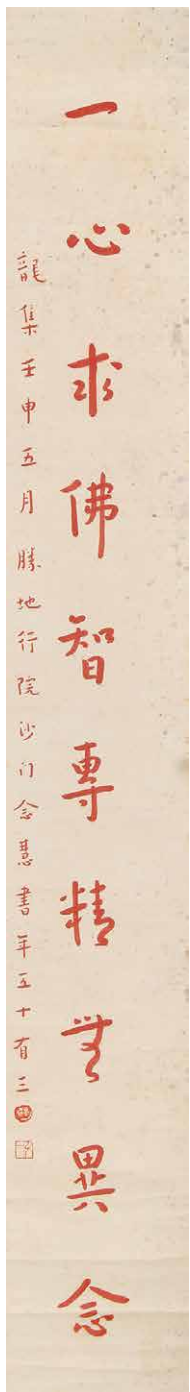 一心求佛智專精無異念
龍集壬申五月勝地行院沙門念慧書年五十有三